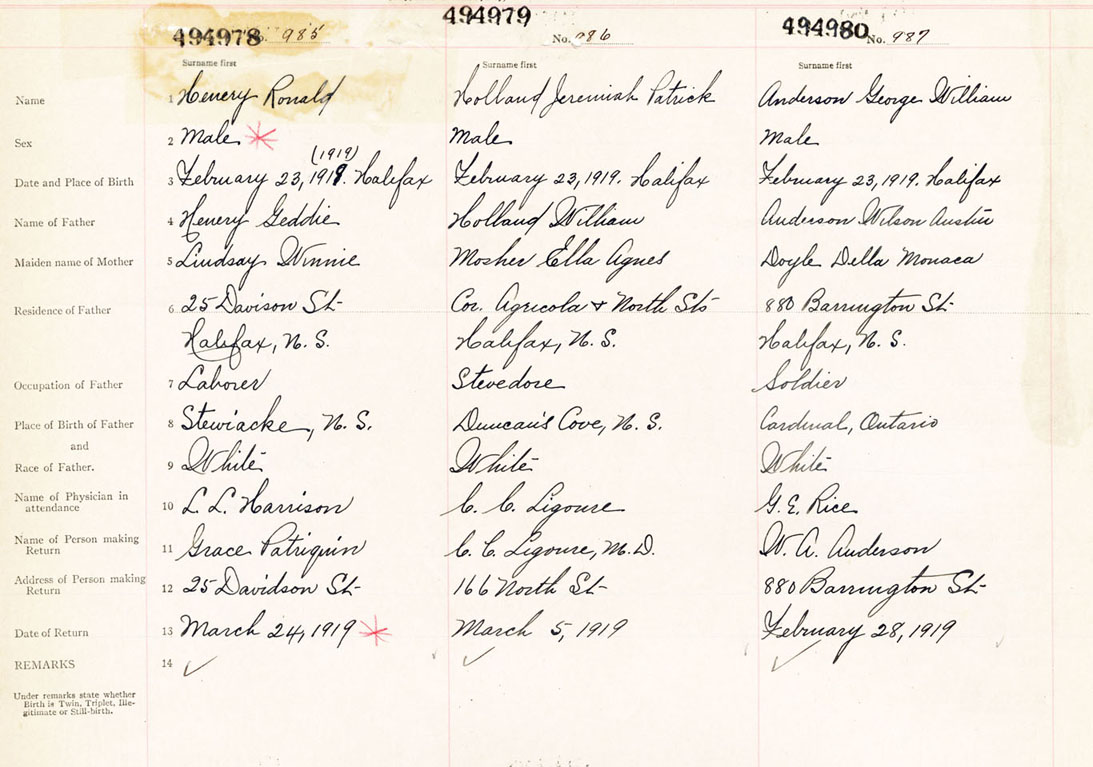 494978 No. 985
494979
No. 986
494980 No. 987
Surname first Surname first Surname first
Name 1 Henery Ronald Holland Jeremiah Patrick Anderson George William
Sex 2 Male Male Male
(1919)
Date and Place of Birth 3 February 23, 1919. Halifax February 23, 1919. Halifax February 23, 1919. Halifax
Name of Father 4 Henery Geddie Holland William Anderson Wilson Austin
Maiden name of Mother 5 Lindsay Winnie Mosher Ella Agnes Doyle Della Monaca
Residence of Father 6 25 Davison St Cor. Agricola & North Sts 880 Barrington St
Halifax, N. S. Halifax, N. S. Halifax, N. S.
Occupation of Father 7 Laborer Stevedore Soldier
Place of Birth of Father 8 Stewiacke, N. S. Duncan's Cove, N. S. Cardinal, Ontario
and
Race of Father. 9 White White White
Name of Physician in
attendance 10 L. L. Harrison C. C. Ligoure G. E. Rice
Name of Person making
Return 11 Grace Patriquin C. C. Ligoure, M.D. W. A. Anderson
Address of Person making
Return 12 25 Davidson St 166 North St 880 Barrington St
Date of Return 13 March 24, 1919 March 5, 1919 February 28, 1919
REMARKS 14 ✓ ✓ ✓
Under remarks state whether
Birth is Twin, Triplet, Ille-
gitimate or Still-birth.